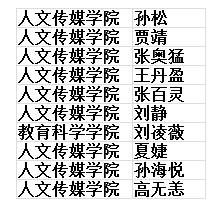 人文传媒学院 孙松
人文传媒学院 贾靖
人文传媒学院 张奥猛
人文传媒学院 王丹盈
人文传媒学院 张百灵
人文传媒学院 刘静
教育科学学院 刘凌薇
人文传媒学院 夏婕
人文传媒学院 孙海悦
人文传媒学院 高无恙